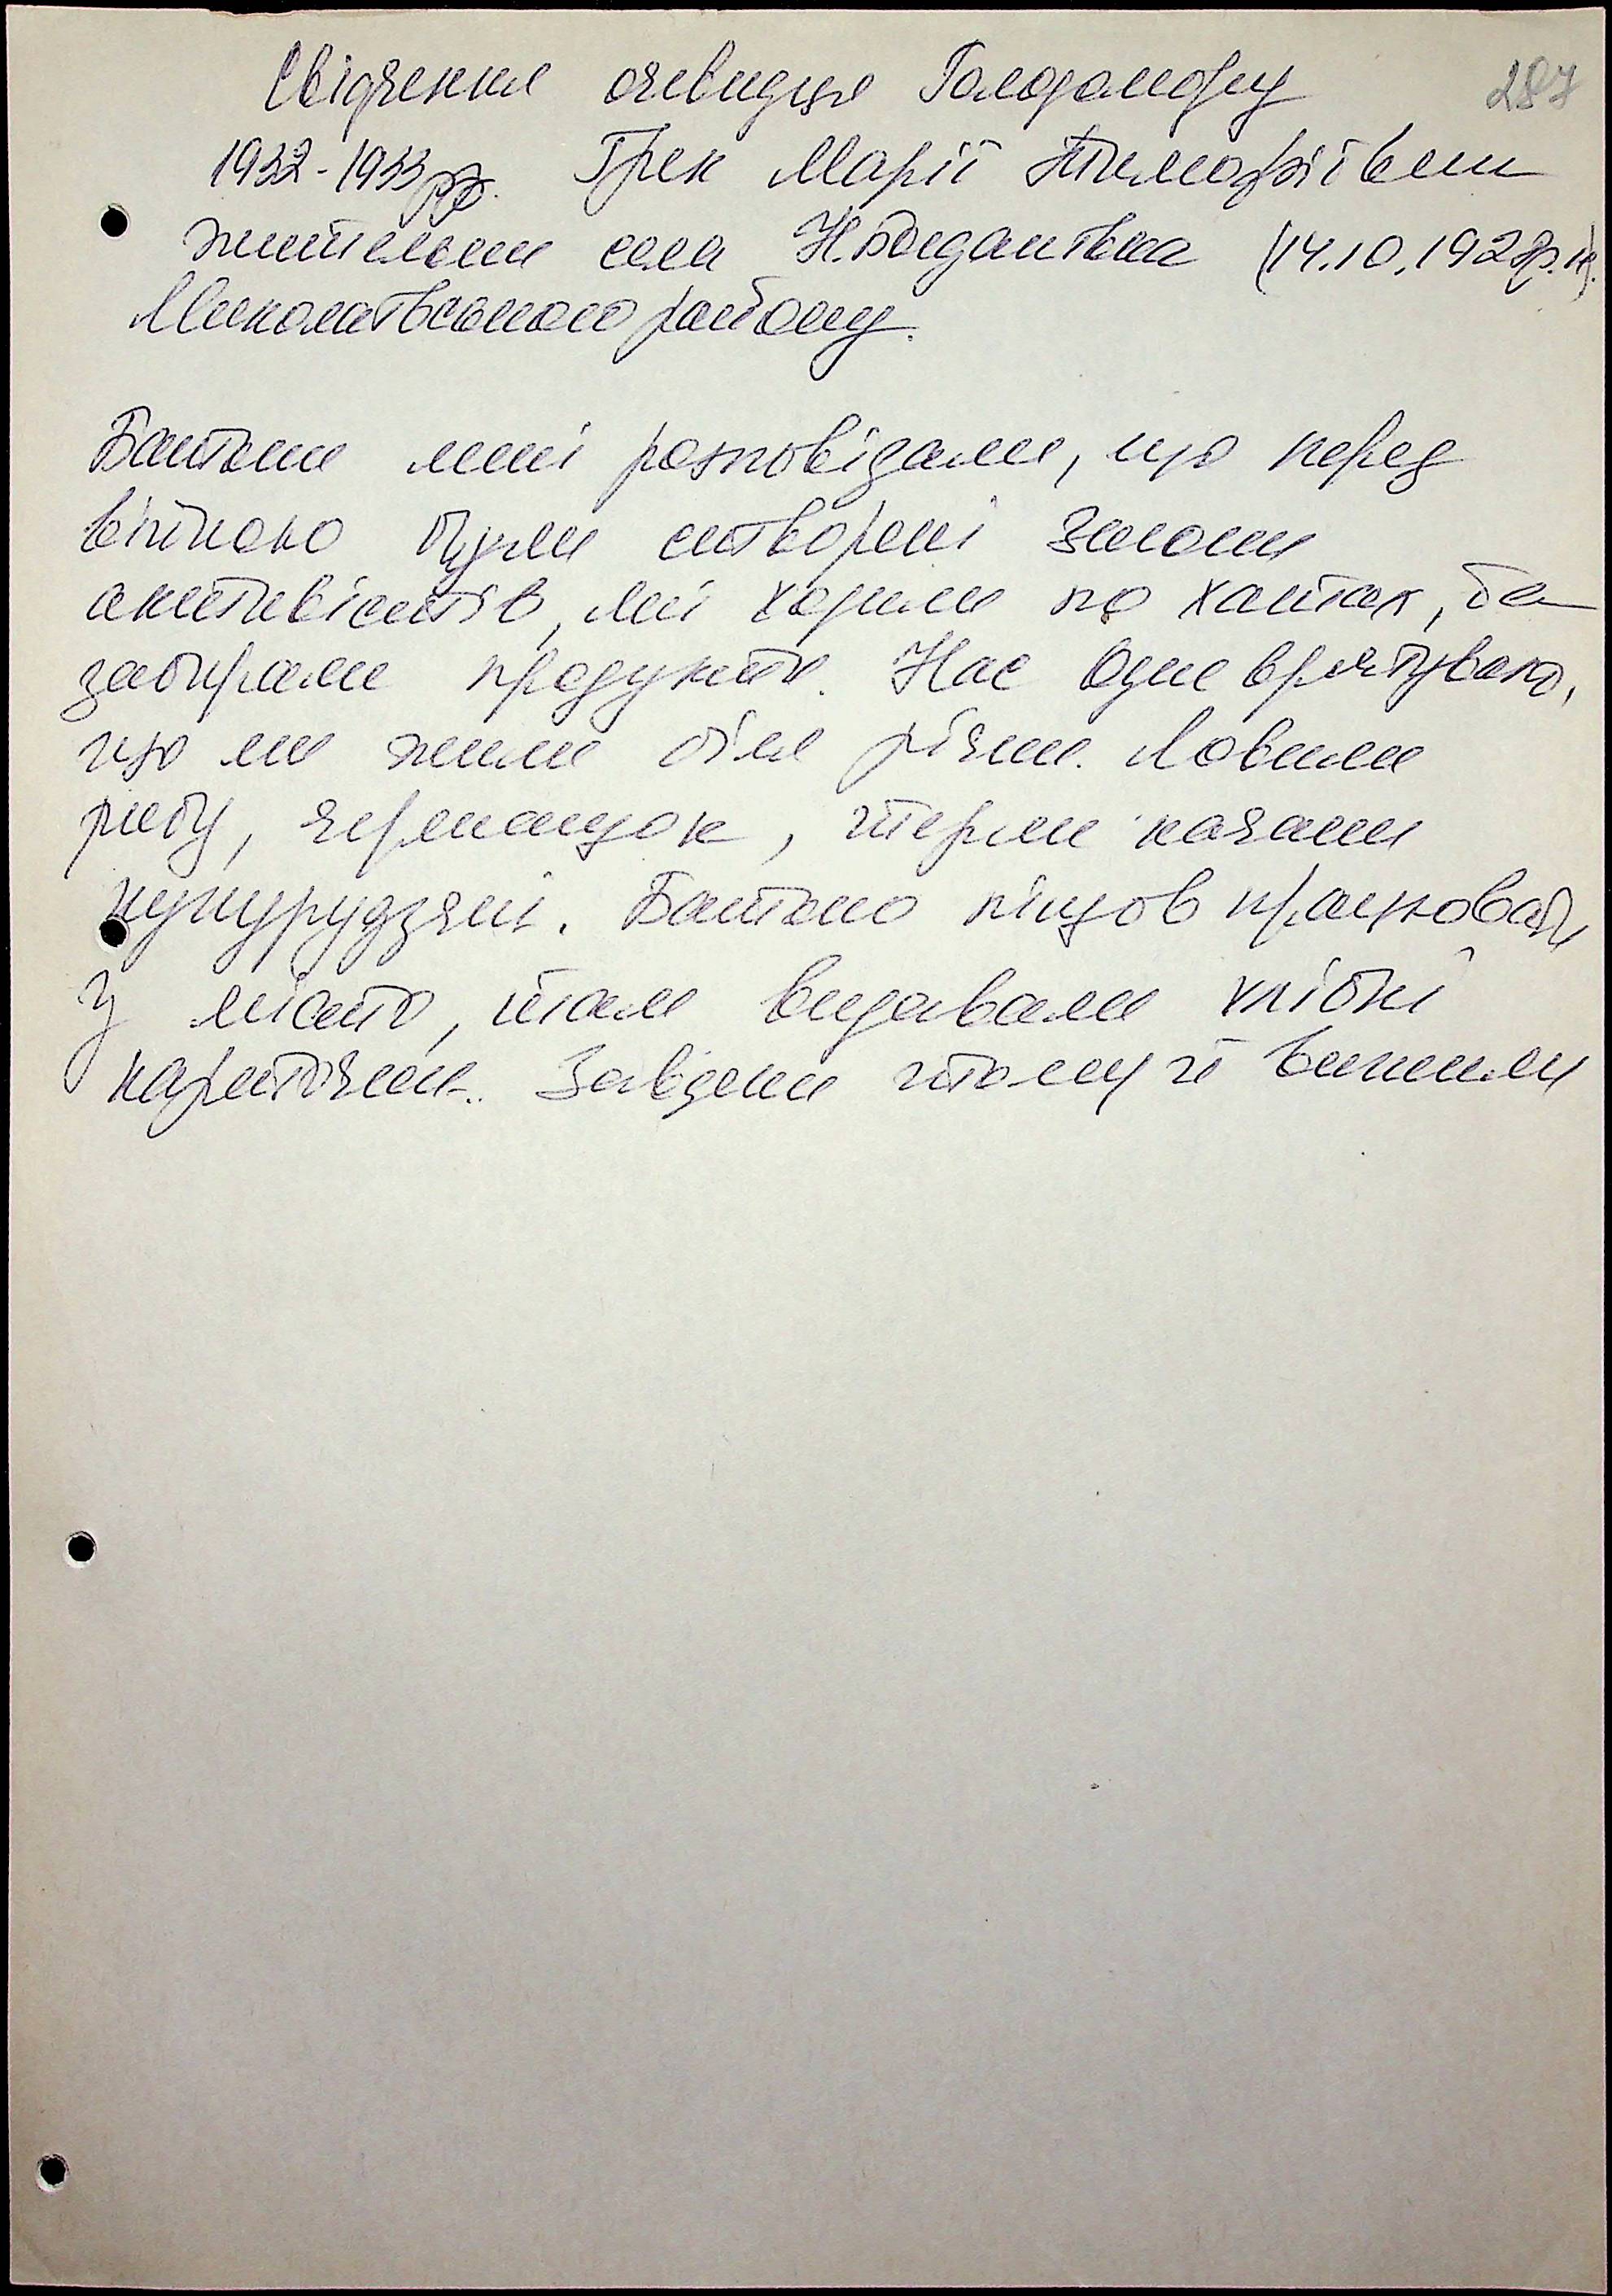 Свідчення очевидця Голодомору
287
1932-1933 рр. Грек Марії Тимофіївни
жительки села Н.Богданівка (14.10.1928р.н).
Миколаївського району.
Батьки мені розповідали, що перед
війною були створені
активістів, які ходили по хатах, та
забирали продукти. Нас одне врятувало,
що ми жили біля річки. Ловили
рибу, черепашок, терли качани
кукурудзяні. Батько пішов працювати
у місто, там видавали хлібні
карточки. Завдяки цьому й вижили